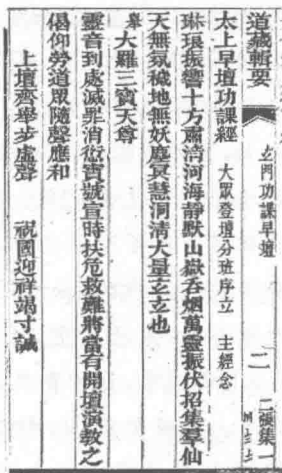 道藏輯要
玄門功課早壇
二
張集一
太上早壇功課經 大眾登壇分班序立 主經念
琳琅振響十方肅清河海靜默山嶽吞烟萬靈振伏招集羣仙
天無氛穢地無妖塵冥慧洞清大量玄玄也
舉大羅三寶天尊
靈音到處滅罪消愆寶號宣時扶危救難將當有開壇演教之
偈仰勞道眾隨聲應和
上壇齊舉步虛聲 祝國迎祥竭寸誠